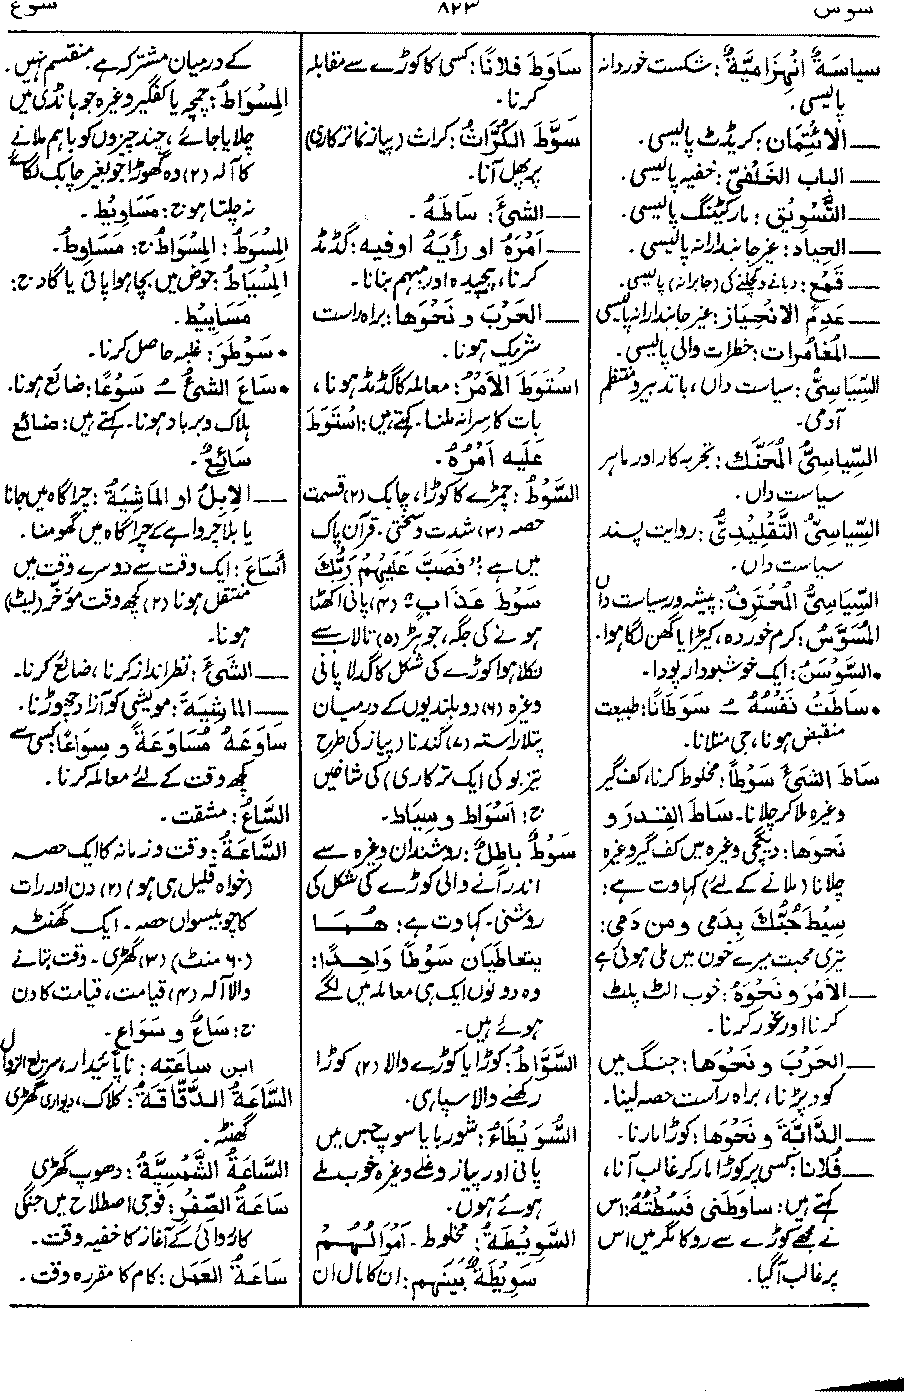 سوس
۸۲۳
سوع
سِیاسَةٌ اِنْهِزامِیَّةٌ: شکست خوردانہ
پالیسی۔
— الاِئْتِمَان: کریڈٹ پالیسی۔
— الباب الخَلْفِیّ: خفیہ پالیسی۔
— التَّسْوِیق: مارکیٹنگ پالیسی۔
— الحِیاد: غیر جانبدارانہ پالیسی۔
— قَمْع: دبانے و کچلنے کی (جابرانہ) پالیسی۔
— عَدَمُ الانْحِیاز: غیر جانبدارانہ پالیسی
— المُغَامَرات: خطرات والی پالیسی۔
السِّیَاسِیُّ: سیاست داں، باتدبیر و منتظم
آدمی۔
السِّیاسِیُّ المُحَنَّكُ: تجربہ کار اور ماہر
سیاست داں۔
السِّیَاسِیُّ التَّقْلِیدِیُّ: روایت پسند
سیاست داں۔
السِّیَاسِیُّ المُحْتَرِفُ: پیشہ ور سیاست داں
المُسَوَّسُ: کرم خوردہ، کیڑا یا گھن لگا ہوا۔
• السَّوْسَنُ: ایک خوشبودار پودا۔
• سَاطَتْ نَفْسُهُ ـُ سَوَطَانًا: طبیعت
منقبض ہونا، جی متلانا۔
سَاطَ الشیْءَ سَوْطًا: مخلوط کرنا، کف گیر
وغیرہ ملا کر چلانا۔ ساط القِدْرَ و
نَحْوَهَا: دیگچی وغیرہ میں کف گیر وغیرہ
چلانا (ملانے کے لئے) کہاوت ہے:
سِیْطَ حُبُّكَ بِدَمِی ومن دَمِی:
تیری محبت میرے خون میں ملی ہوئی ہے
— الأمْرَ و نَحْوَهُ: خوب الٹ پلٹ
کرنا اور غور کرنا۔
— الحَرْبَ و نَحْوَها: جنگ میں
کود پڑنا، براہ راست حصہ لینا۔
— الدَّابَّةَ و نَحْوَها: کوڑا مارنا۔
— فُلانًا: کسی پر کوڑا مار کر غالب آنا،
کہتے ہیں: ساوَطَنِی فَسُطْتُهُ: اس
نے مجھے کوڑے سے روکا مگر میں اس
پر غالب آگیا۔
سَاوَطَ فلانًا: کسی کا کوڑے سے مقابلہ
کرنا۔
سَوَّطَ الكُرَّاثُ: کراث (پیاز نما ترکاری)
پر پھل آنا۔
— الشیْءَ: سَاطَهُ۔
— اَمْرَهُ او رأیَهُ اوفیه: گڈمڈ
کرنا، پیچیدہ اور مبہم بنانا۔
— الحَرْبَ و نَحْوَها: براہ راست
شریک ہونا۔
اسْتَوَطَ الأمْرُ: معاملہ کا گڈمڈ ہونا،
بات کا سرا نہ ملنا۔ کہتے ہیں: اسْتَوَطَ
عَلَیه اَمْرُهُ۔
السَّوْطُ: چمڑے کا کوڑا، چابک (۲) قسمت
حصہ (۳) شدت و سختی۔ قرآن پاک
میں ہے: "فَصَبَّ عَلَیْهِمْ رَبُّكَ
سَوْطَ عَذَابٍ" (۴) پانی اکھٹا
ہونے کی جگہ، جوہڑ (۵) تالاب سے
نکلا ہوا کوڑے کی شکل کا گدلا پانی
وغیرہ (۶) دو بلندیوں کے درمیان
پتلا راستہ (۷) گندنا (پیاز کی طرح
تیز بو کی ایک ترکاری) کی شاخیں
ج: اَسْوَاط و سِیاط۔
سَوْطُ باطِلٌ: روشندان وغیرہ سے
اندر آنے والی کوڑے کی شکل کی
روشنی۔ کہاوت ہے: هُمَا
یتعاطیان سَوْطًا وَاحِدًا:
وہ دونوں ایک ہی معاملہ میں لگے
ہوئے ہیں۔
السَّوَّاطُ: کوڑا یا کوڑے والا (۲) کوڑا
رکھنے والا سپاہی۔
السُّوَیْطَاءُ: شوربا یا سوپ جس میں
پانی اور پیاز و غلے وغیرہ خوب ملے
ہوئے ہوں۔
السَّوِیْطَةُ: مخلوط۔ اَمْوَالُهُمْ
سَوِیْطَةٌ بَیْنَهم: ان کا مال ان
کے درمیان مشترک ہے، منقسم نہیں۔
المِسْوَاطُ: چمچہ یا کفگیر وغیرہ جو ہانڈی میں
چلایا جائے، چند چیزوں کو باہم ملانے
کا آلہ (۲) وہ گھوڑا جو بغیر چابک لگائے
نہ چلتا ہو ج: مَسَاوِیط۔
المِسْوَطُ: المِسْوَاطُ ج: مَسَاوِط۔
المِسْیَاطُ: حوض میں بچا ہوا پانی یا گاد ج:
مَسَایِیط۔
• سَوْطَرَ: غلبہ حاصل کرنا۔
• سَاعَ الشیْءُ ـُ سَوْعًا: ضائع ہونا،
ہلاک و برباد ہونا۔ کہتے ہیں: ضائع
سَائِعٌ۔
— الإبِلُ او المَاشِیَةُ: چراگاہ میں جانا
یا بلا چرواہے کے چراگاہ میں گھومنا۔
أَسَاعَ: ایک وقت سے دوسرے وقت میں
منتقل ہونا (۲) کچھ وقت مؤخر (لیٹ)
ہونا۔
— الشیءَ: نظر انداز کرنا، ضائع کرنا۔
— المَاشِیَةَ: مویشی کو آزاد چھوڑنا۔
سَاوَعَهُ مُسَاوَعَةً و سِوَاعًا: کسی سے
کچھ وقت کے لئے معاملہ کرنا۔
السَّاعُ: مشقت۔
السَّاعَةُ: وقت و زمانہ کا ایک حصہ
(خواہ قلیل ہی ہو) (۲) دن اور رات
کا چوبیسواں حصہ۔ ایک گھنٹہ
(۶۰ منٹ) (۳) گھڑی۔ وقت بتانے
والا آلہ (۴) قیامت، قیامت کا دن
ج: سَاعٌ و سَوَاع۔
ابن ساعَتِه: ناپائیدار، سریع الزوال
السَّاعَةُ الدَّقَّاقَةُ: کلاک، دیواری گھڑی
گھنٹہ۔
السَّاعَةُ الشَّمْسِیَّةُ: دھوپ گھڑی
سَاعَةُ الصِّفْرِ: فوجی اصطلاح میں جنگی
کارروائی کے آغاز کا خفیہ وقت۔
سَاعَةُ العَمَل: کام کا مقررہ وقت۔